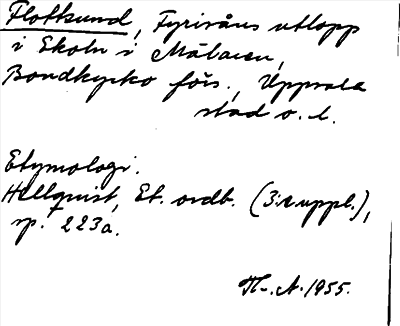 Flottsund, Fyrisåns utlopp
i Ekoln i Mälaren,
Bondkyrko förs., Uppsala
stad o. l.
Etymologi.
Hellquist, Et. ordb. (3:e uppl.),
sp. 223a.
1955.